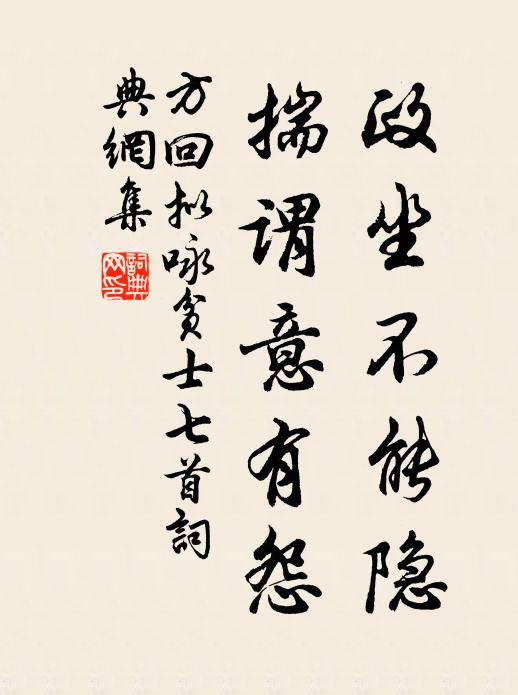 政坐不能隐
揣谓意有怨
方回拟咏贫士七首詞
典網集
詞典网印